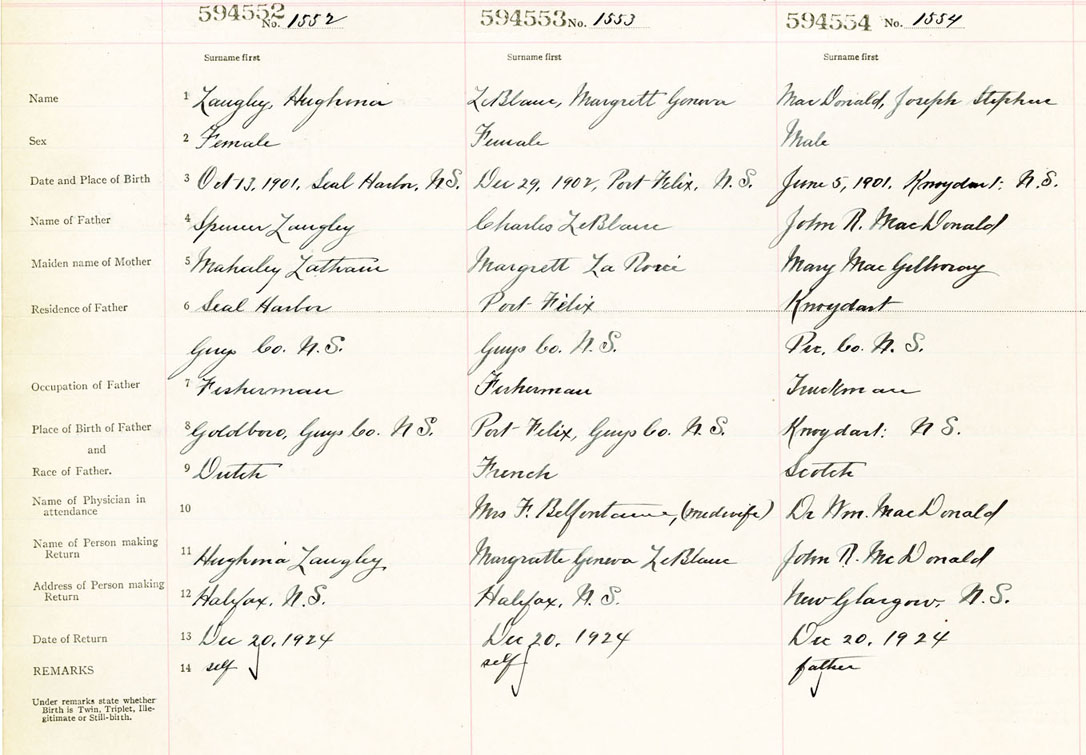 594552 No. 1552 594553 No. 1553 594554 No. 1554
Surname first Surname first Surname first
Name 1 Langley, Hughina LeBlanc, Margrett Geneva MacDonald, Joseph Stephen
Sex 2 Female Female Male
Date and Place of Birth 3 Oct 13, 1901, Seal Harbor, N.S. Dec 29, 1902, Port Felix, N.S. June 5, 1901. Knoydart: N.S.
Name of Father 4 Spencer Langley Charles LeBlanc John R. MacDonald
Maiden name of Mother 5 Mahaley Latham Margrett La Mary MacGillvray
Residence of Father 6 Seal Harbor Port Felix Knoydart
Guys Co. N.S. Guys Co. N.S. Pic. Co. N.S.
Occupation of Father 7 Fisherman Fisherman Truckman
Place of Birth of Father 8 Goldboro, Guys Co. N.S. Port Felix, Guys Co. N.S. Knoydart: N.S.
and
Race of Father. 9 Dutch French Scotch
Name of Physician in
attendance 10 Mrs F. Belfontaine, (midwife) Dr Wm. MacDonald
Name of Person making
Return 11 Hughina Langley Margratte Geneva LeBlanc John R. McDonald
Address of Person making
Return 12 Halifax, N.S. Halifax, N.S. New Glasgow, N.S.
Date of Return 13 Dec 20, 1924 Dec 20, 1924 Dec 20, 1924
REMARKS 14 self self father
Under remarks state whether
Birth is Twin, Triplet, Ille-
gitimate or Still-birth.